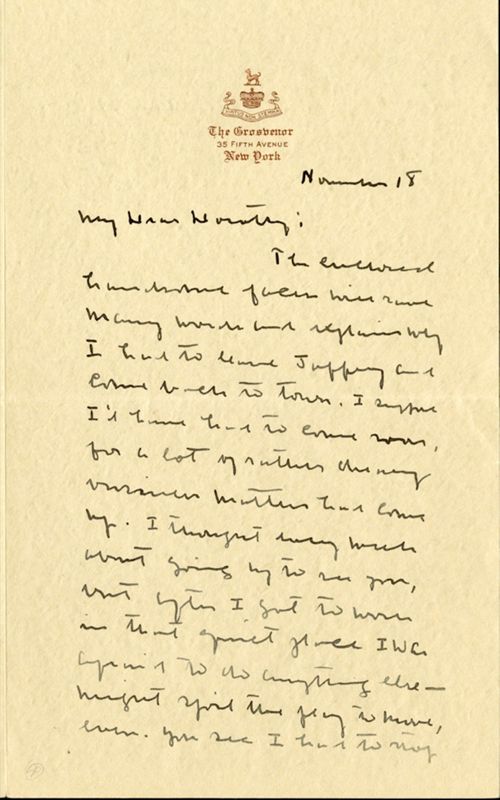 The Grosvenor
35 FIFTH AVENUE
New York
November 18
My Dear Dorothy:
The enclosed
handsome faces will save
many words and explains why
I had to leave Jaffrey and
come back to town. I suppose
I'd have had to come soon,
for a lot of rather dreary
business matters had come
up. I thought every week
about going up to see you,
but after I got to work
in that quiet place I was
afraid to do anything else—
might spoil the play to move,
even. You see I had to stop